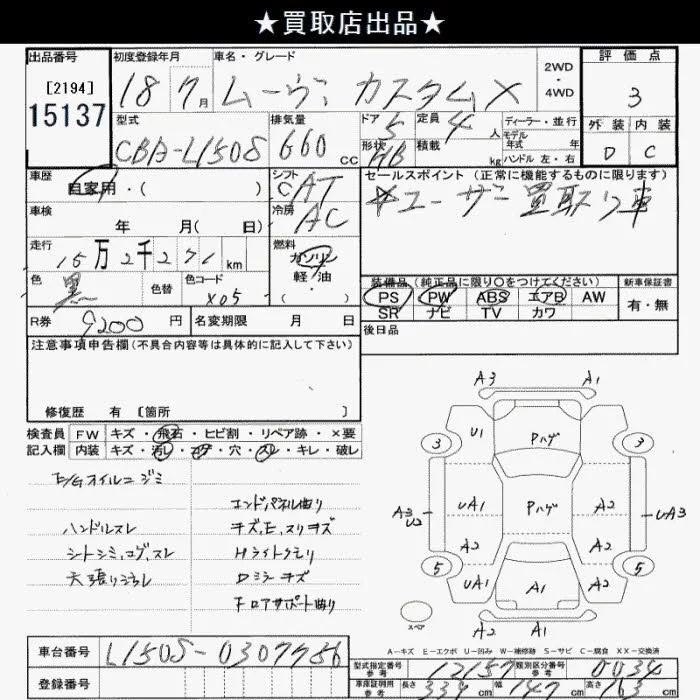 ★買取店出品★
出品番号 初度登録年月 車名・グレード 2WD・4WD 評価点
[2194] 15137 18 7月 ムーヴ カスタム X 3
型式 排気量 ドア 定員 ディーラー・並行 外装 内装
CBA-L150S 660 cc 5 4人 モデル年式 年 D C
形状 HB 積載 kg ハンドル 左・右
車歴 シフト セールスポイント(正常に機能するものに限ります)
自家用・( ) CAT ユーザー買取り車
車検 冷房
年 月( 日) AC
走行 燃料
15万2千271km ガソリン
色 色替 色コード 軽・油
黒 X05 ・( )
装備品(純正品に限り○をつけてください) 新車保証書
PS PW ABS エアB AW 有・無
SR ナビ TV カワ
R券 9200円 名変期限 月 日 後日品
注意事項申告欄(不具合内容等は具体的に記入して下さい)
修復歴 有 [箇所 ]
検査員 FW キズ・飛石・ヒビ割・リペア跡・×要
記入欄 内装 キズ・汚レ・コゲ・穴・スレ・キレ・破レ
E/Gオイルニジミ
エンドパネル曲り
ハンドルスレ キズ,E,スリキズ
シートシミ,コゲ,スレ Hライトクモリ
天張り Dミラーキズ
Fロアサポート曲り
A3 A1
3 U1 Pハゲ 3
A3 U2 UA1 Pハゲ A2 UA3
A2 A2
5 UA1 A1 A2 5
スペア A2 A1
A-キズ E-エクボ U-凹み W-補修跡 S-サビ C-腐食 XX-交換済
車台番号 L150S-0307756
登録番号
型式指定番号 参考 12157 類別区分番号 参考 0034
車庫証明用 参考 長さ 339cm 幅 147cm 高さ cm